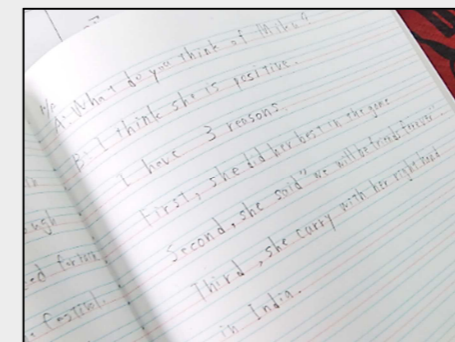 A: What do you think of Miku?
B: I think she is positive.
I have 3 reasons.
First, she did her best in the game
Second, she said "we will be friends forever".
Third, she curry with her right hand
in India.
ugh
ed for
festival.